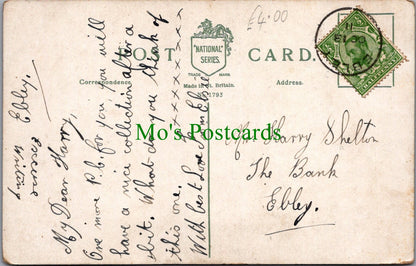 £4.00
POST CARD.
"NATIONAL"
SERIES.
TRADE MARK
Made in Gt. Britain.
1793
Correspondence.
Address.
Mo's Postcards
Ebley.
Excuse
writing
My Dear Harry,
One more P.C. for you you will
have a nice collection after a
bit. What do you think of
this one.
With best Love from Elsie
xxxxxxxxx
Mr Harry Shelton
The Bank
Ebley.